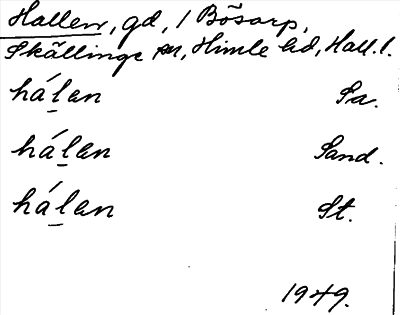 Hallen, gd, i Bösarp,
Skällinge sn, Himle hd, Hall. l.
há̱len Sa.
há̱len Sand.
há̱len St.
1949.